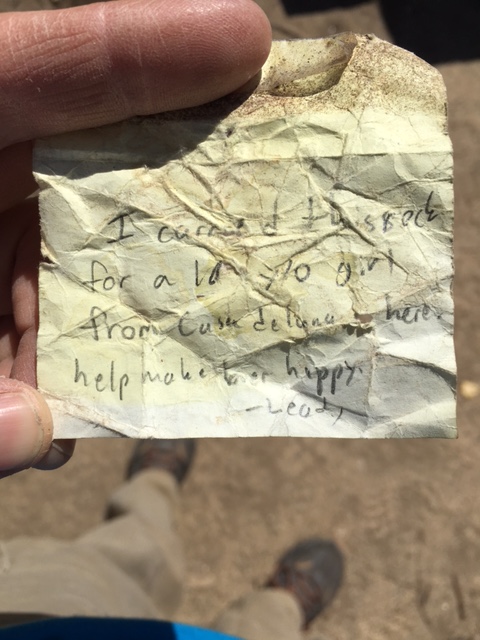 I carried this rock
for a y/o girl
from Casa de luna here.
help make her happy.